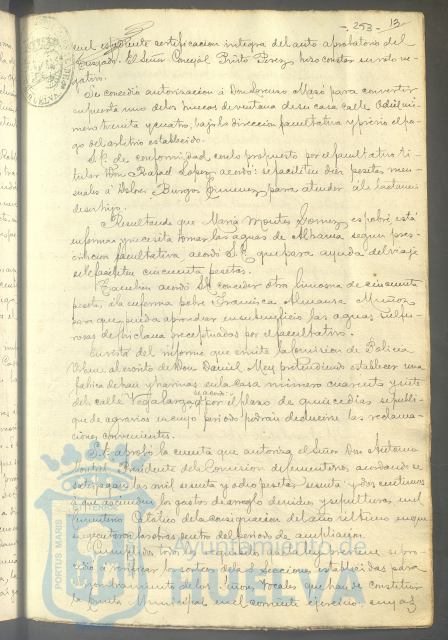 253 13
en el expediente certificación integra del auto aprobatorio del
Juzgado. El Señor Concejal Prieto Perez hizo constar su voto ne-
gativo.
Se concedió autorización á Don Lorenzo Mazó para convertir
en puerta uno de los huecos de ventana de su casa calle Odiel nú-
mero treinta y cuatro, bajo la dirección facultativa y previo el pa-
go del arbitrio establecido.
S. E. de conformidad con lo propuesto por el facultativo ti-
tular Don Rafael Lopez, acordó: se faciliten diez pesetas men-
suales á Dolores Burgos Gimenez, para atender á la lactancia
de su hijo.
Resultando que María Montes Gomez es pobre está
enferma y necesita tomar las aguas de Alhama segun pres-
cripción facultativa, acordó S. E. que para ayuda del viaje
se le faciliten cincuenta pesetas.
Tambien acordó S. E. conceder otra limosna de cincuenta
pesetas, á la enferma pobre Francisca Almansa Muñoz
para que pueda aprovechar en su beneficio las aguas sulfu-
rosas de Chiclana preceptuadas por el facultativo.
En vista del informe que emite la Comision de Policia
Urbana al escrito de Don Daniel Mey pretendiendo establecer una
fabrica de pan y harinas en la casa número cuarenta y siete
de la calle Vega larga, se acordó: por el plazo de quince dias se publi-
que de agravios en cuyo periodo podrán deducirse las reclama-
ciones convenientes.
S. E. aprobó la cuenta que autoriza el Señor Don Antonio
Presidente de la Comision de Cementerios, acordando se
satisfagan las mil sesenta y ocho pesetas sesenta y dos centimos
á que ascienden los gastos de arreglo de nichos y sepulturas, en el
cementerio Católico de la consignacion del año ultimo en que
se ejecutaron las obras dentro del periodo de ampliacion.
Cumplido todo
cedió á renovar los sorteos de las Secciones, establecidas para
nombramiento de los Señores Vocales que han de constituir
la Junta Municipal en el corriente ejercicio, cuyo
PORTUS MARIS
Ayuntamiento de
HUELVA